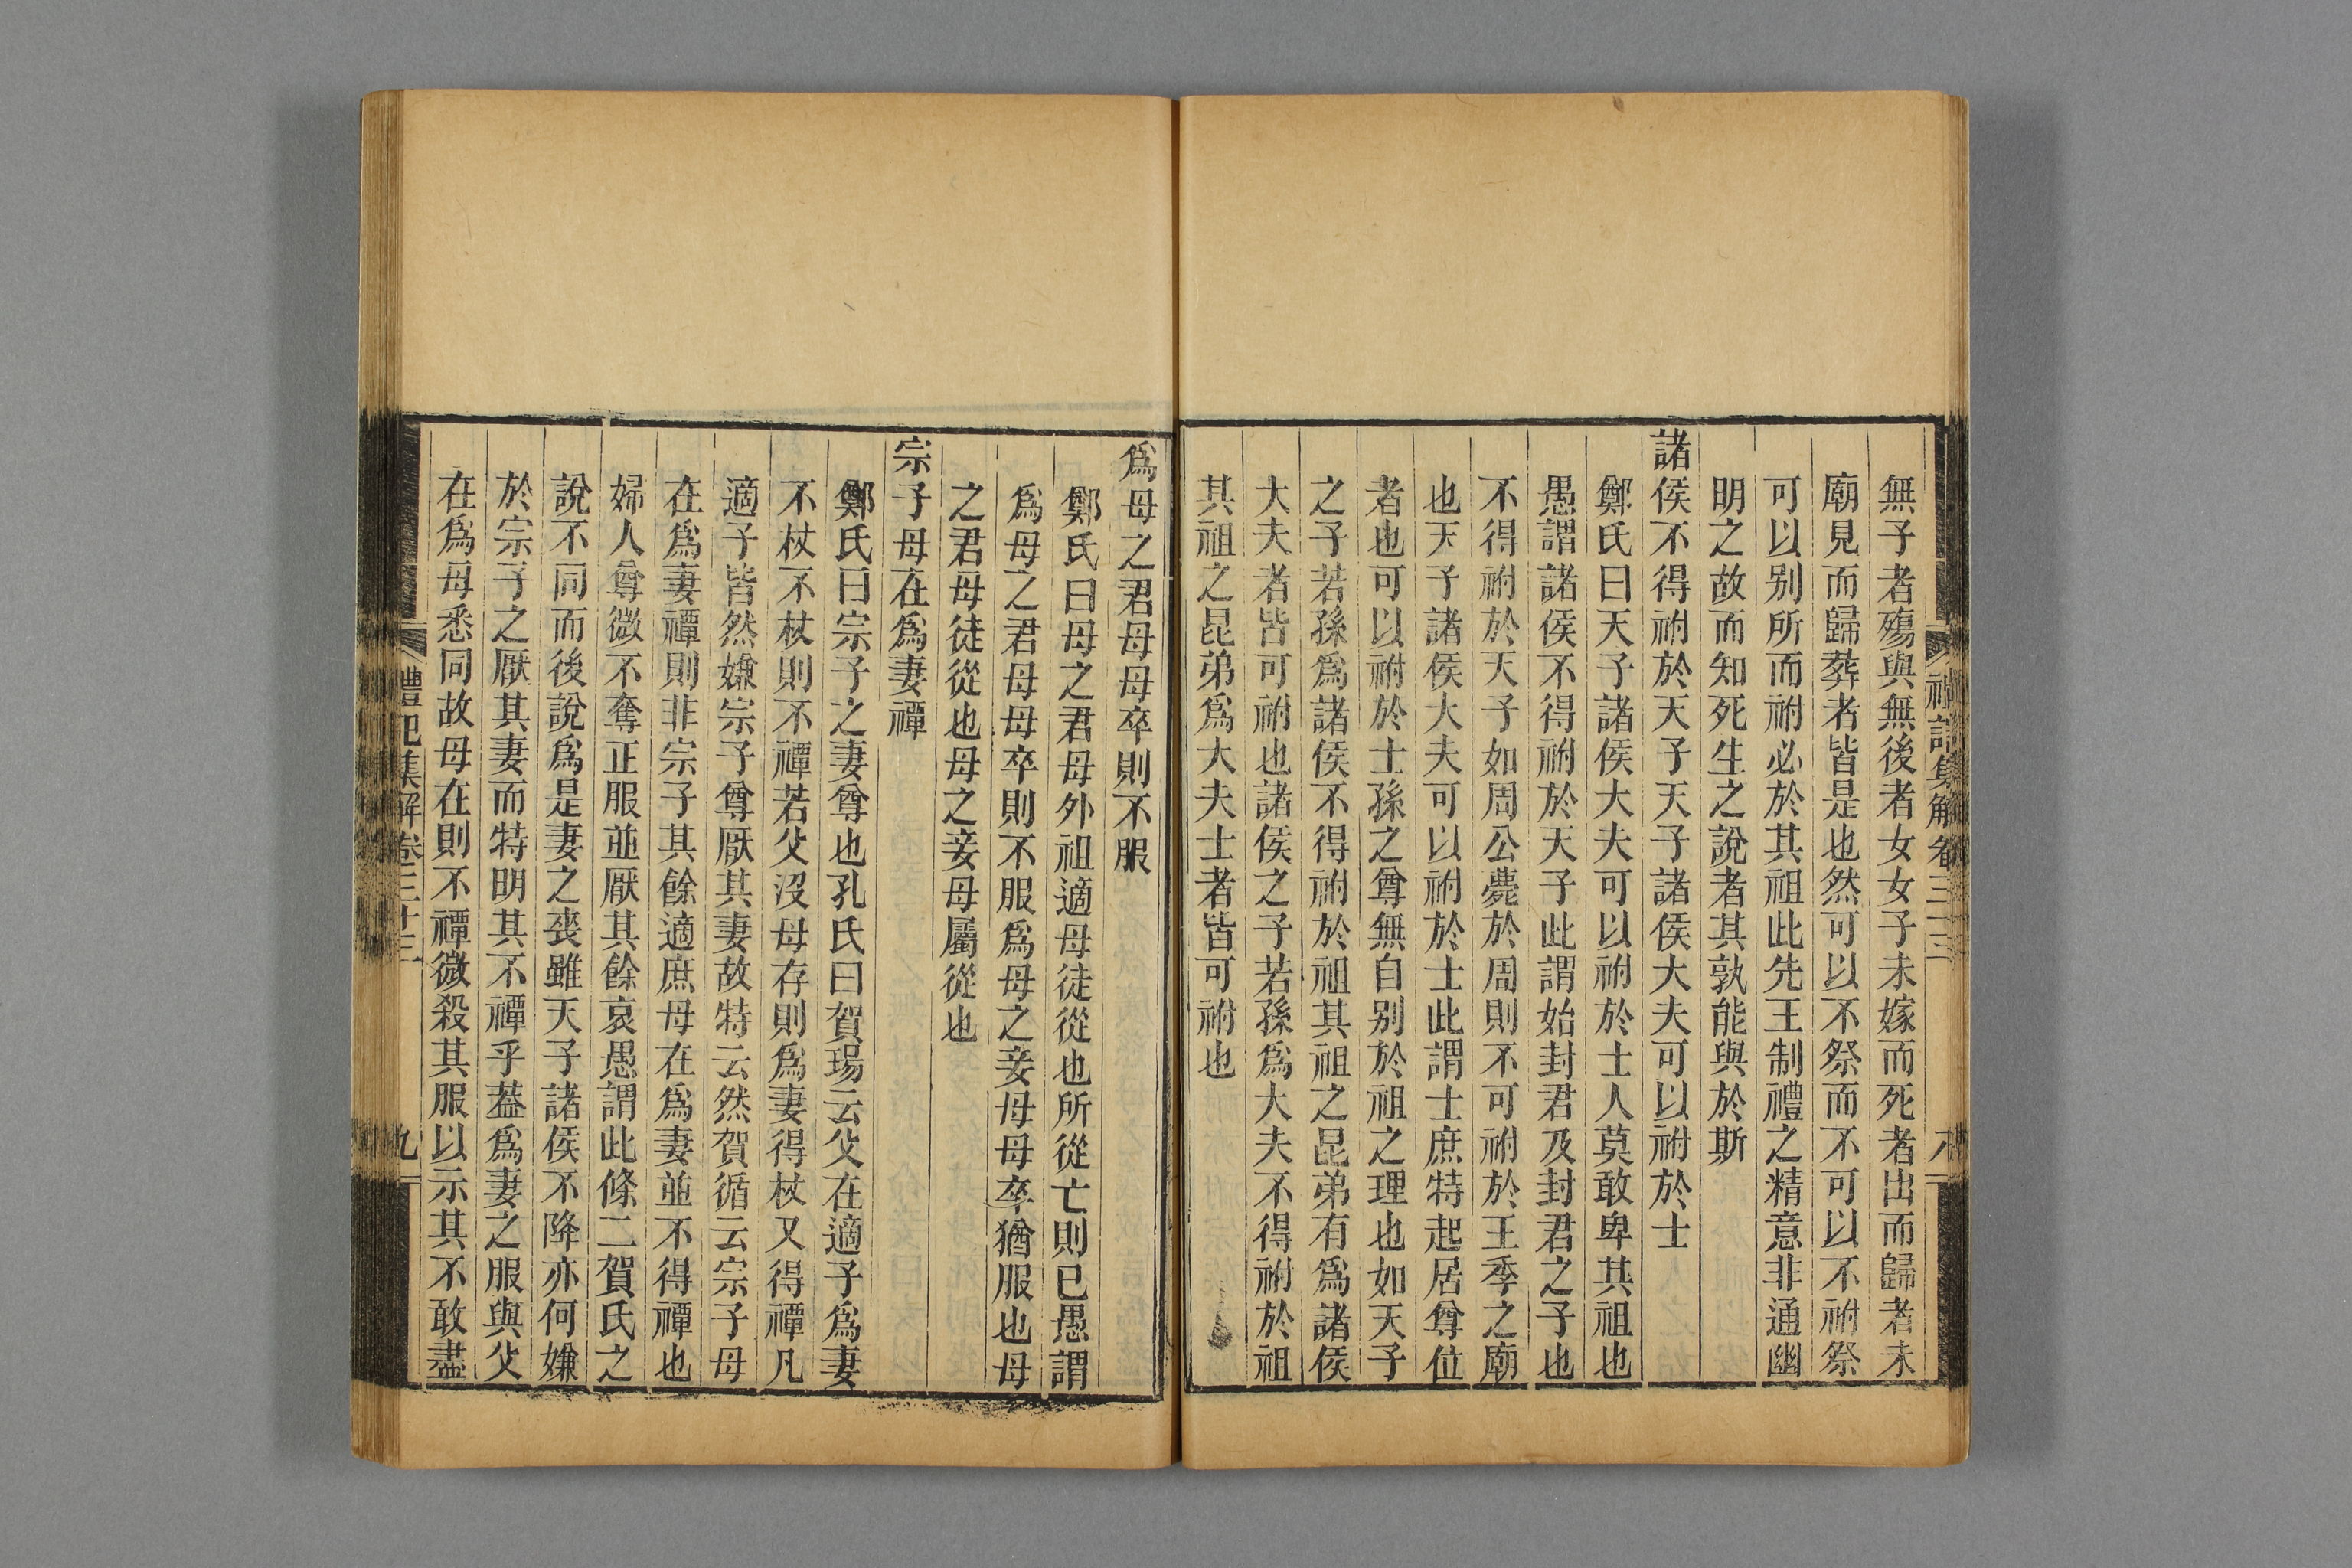 禮記集解卷三十三 八
無子者殤與無後者女女子未嫁而死者出而歸者未
廟見而歸葬者皆是也然可以不祭而不可以不祔祭
可以别所而祔必於其祖此先王制禮之精意非通幽
明之故而知死生之說者其孰能與於斯
諸侯不得祔於天子天子諸侯大夫可以祔於士
鄭氏曰天子諸侯大夫可以祔於士人莫敢卑其祖也
愚謂諸侯不得祔於天子此謂始封君及封君之子也
不得祔於天子如周公薨於周則不可祔於王季之廟
也天子諸侯大夫可以祔於士此謂士庶特起居尊位
者也可以祔於士孫之尊無自别於祖之理也如天子
之子若孫爲諸侯不得祔於祖其祖之昆弟有爲諸侯
大夫者皆可祔也諸侯之子若孫爲大夫不得祔於祖
其祖之昆弟爲大夫士者皆可祔也
爲母之君母母卒則不服
鄭氏曰母之君母外祖適母徒從也所從亡則已愚謂
爲母之君母母卒則不服爲母之妾母母卒猶服也母
之君母徒從也母之妾母屬從也
宗子母在爲妻禫
鄭氏曰宗子之妻尊也孔氏曰賀瑒云父在適子爲妻
不杖不杖則不禫若父沒母存則爲妻得杖又得禫凡
適子皆然嫌宗子尊厭其妻故特云然賀循云宗子母
在爲妻禫則非宗子其餘適庶母在爲妻並不得禫也
婦人尊微不奪正服並厭其餘哀愚謂此條二賀氏之
說不同而後說爲是妻之喪雖天子諸侯不降亦何嫌
於宗子之厭其妻而特明其不禫乎葢爲妻之服與父
在爲母悉同故母在則不禫微殺其服以示其不敢盡
禮記集解卷三十三 九